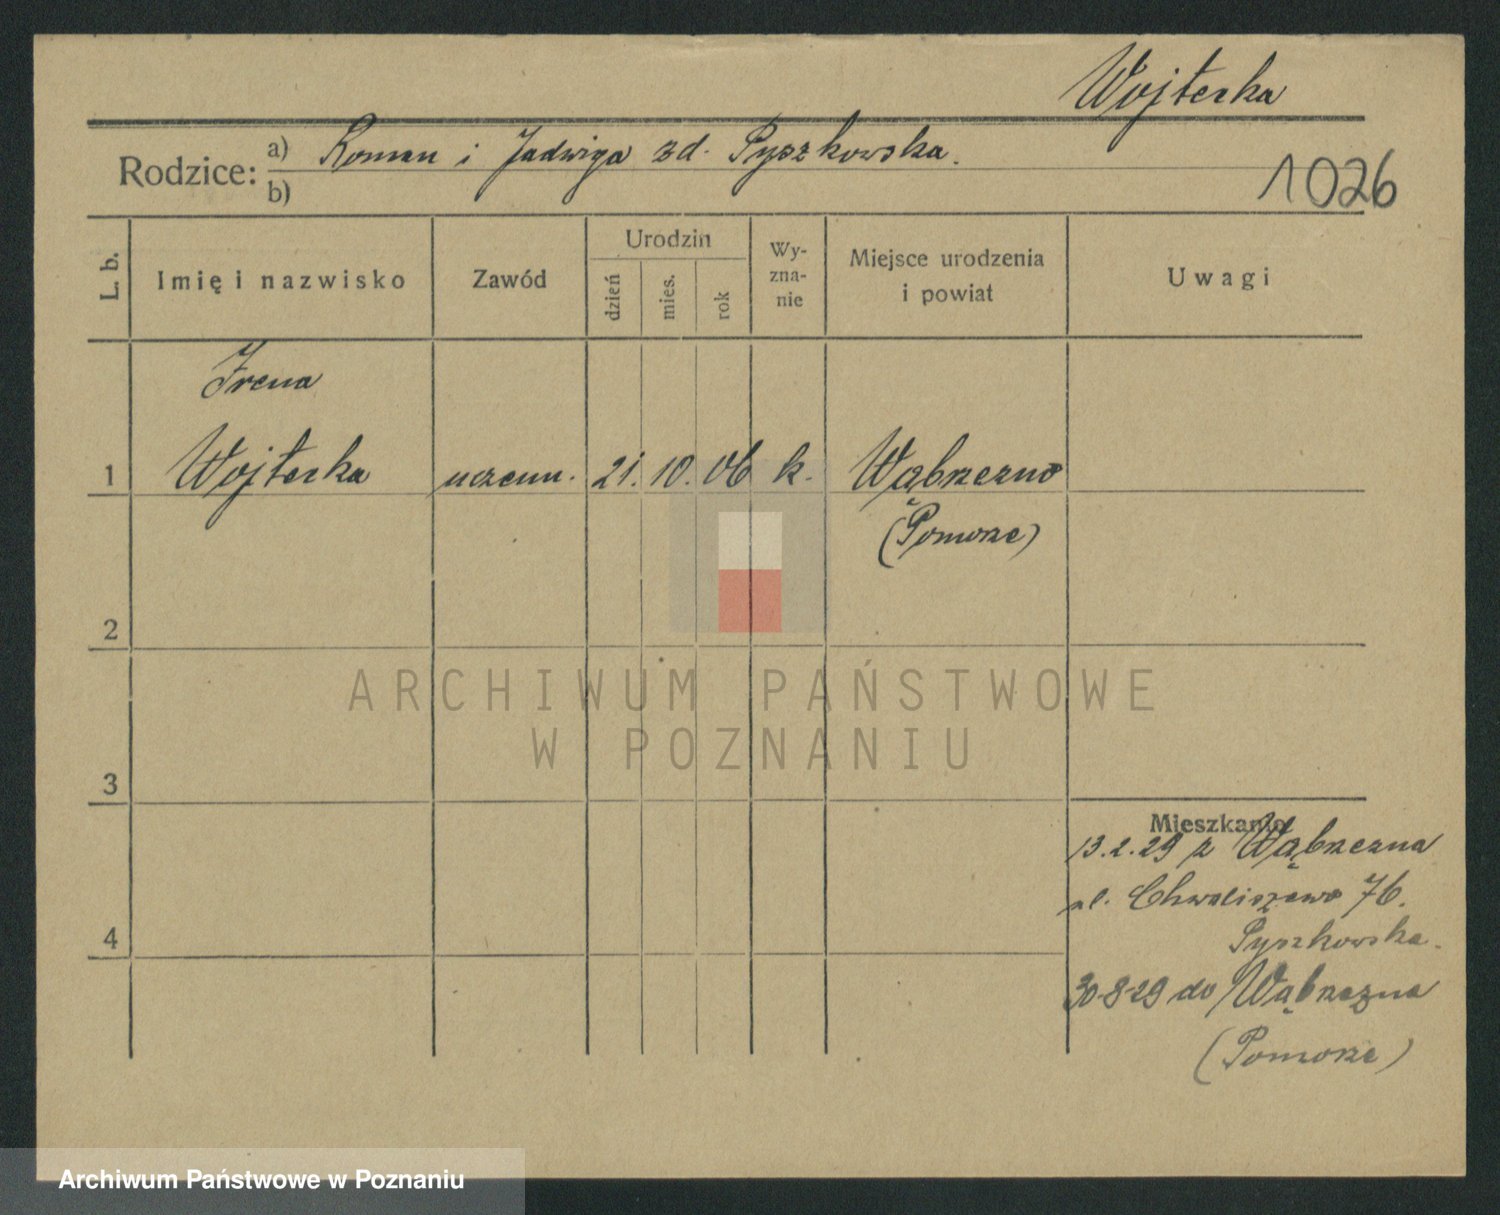 Wojterka
Rodzice: a) Roman i Jadwiga zd. Pyszkowska.
b)
1026
L. b.
Imię i nazwisko
Zawód
Urodzin
dzień
mies.
rok
Wy-
zna-
nie
Miejsce urodzenia
i powiat
Uwagi
Irena
1 Wojterka uczenn. 21. 10. 06 k. Wąbrzeźno
(Pomorze)
2
ARCHIWUM PAŃSTWOWE
W POZNANIU
3
Mieszkanie
13.2.29 z Wąbrzezna
ul. Chwaliszewo 76.
Pyszkowska.
4
30-8-29 do Wąbrzezna
(Pomorze)
Archiwum Państwowe w Poznaniu